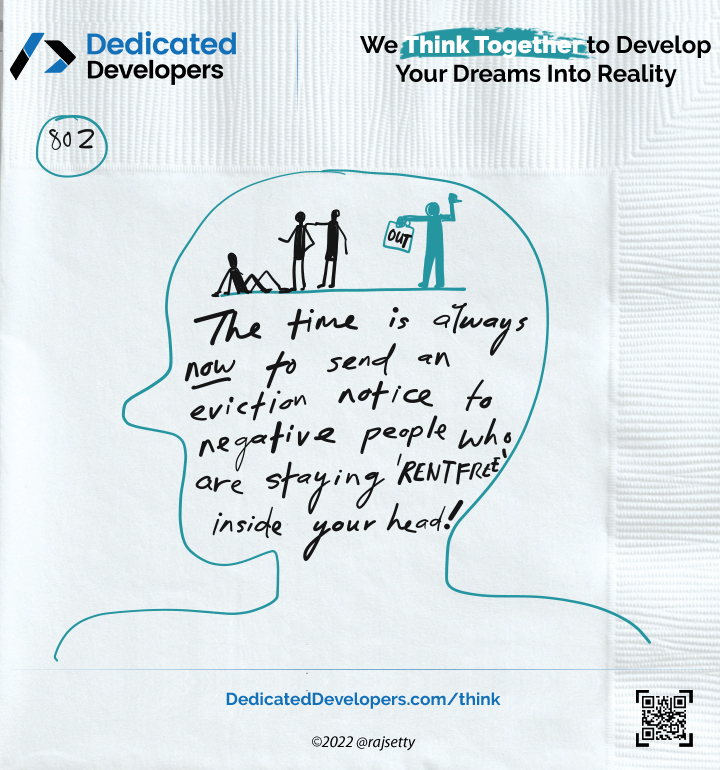 Dedicated
Developers
We Think Together to Develop
Your Dreams Into Reality
802
OUT
The time is always
now to send an
eviction notice to
negative people who
are staying 'RENTFREE'
inside your head!
DedicatedDevelopers.com/think
©2022 @rajsetty